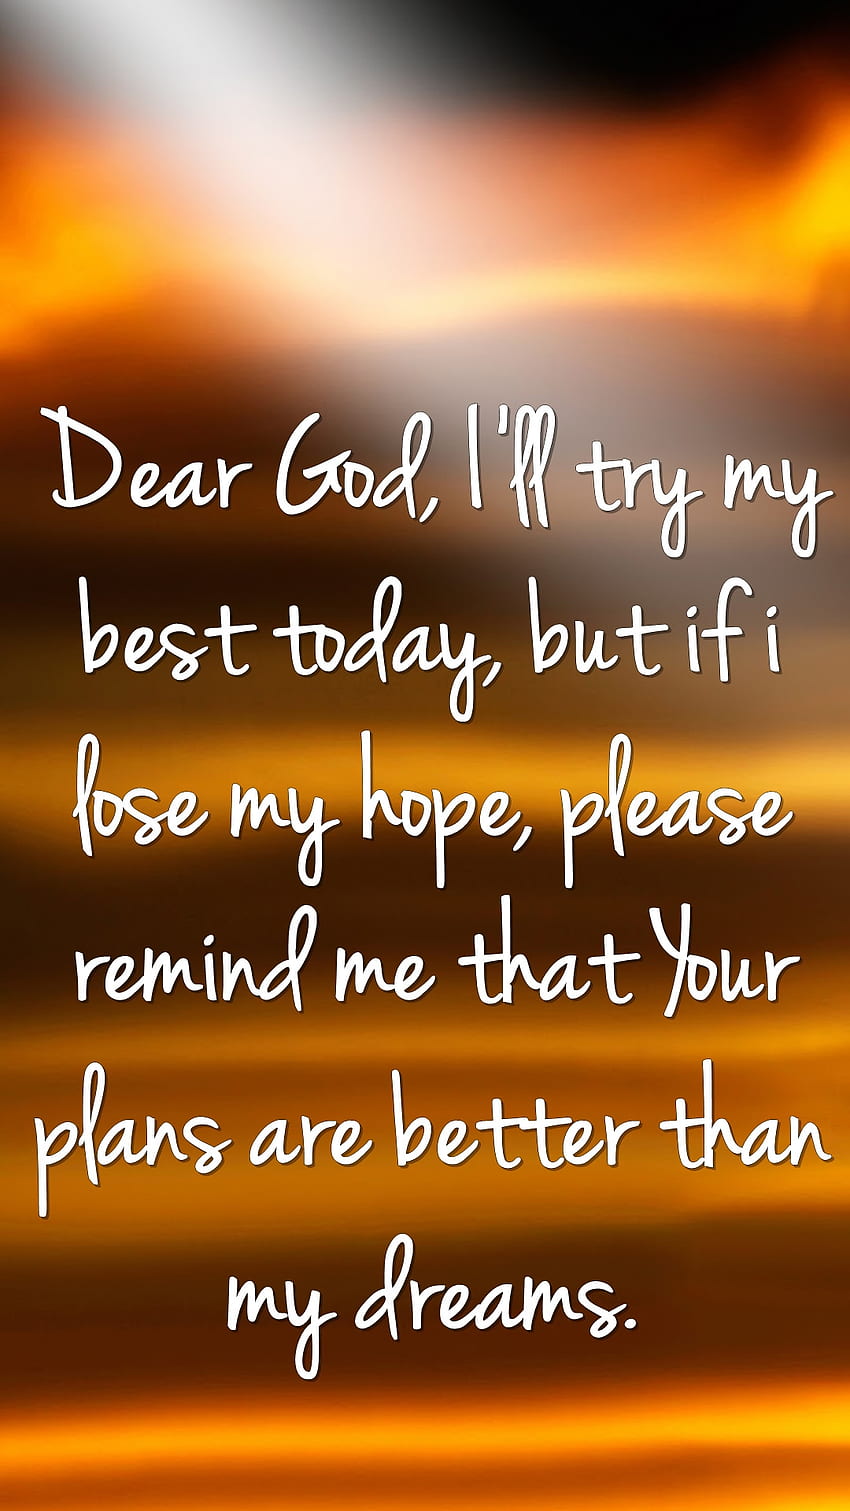 Dear God, I'll try my
best today, but if i
lose my hope, please
remind me that Your
plans are better than
my dreams.